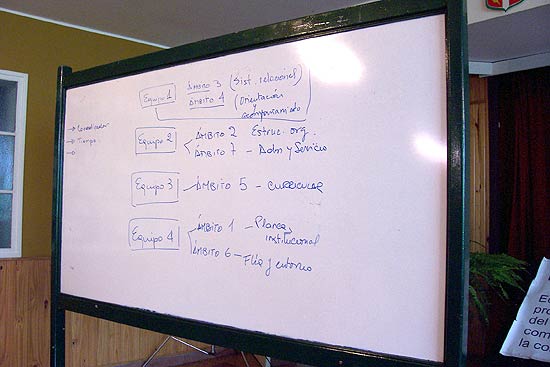 Equipo 1
Ámbito 3 (Sist. relacional)
Ámbito 4 (Orientación
y
acompañamiento)
→ Coordinador
→ Tiempo
→
Equipo 2
Ámbito 2 Estruc. org.
Ámbito 7 - Adm y Servicio
Equipo 3 - Ámbito 5 - curricular
Equipo 4
Ámbito 1 - Planeac
institucional
Ámbito 6 - Flia y entorno
EC
pro
del
com
la co